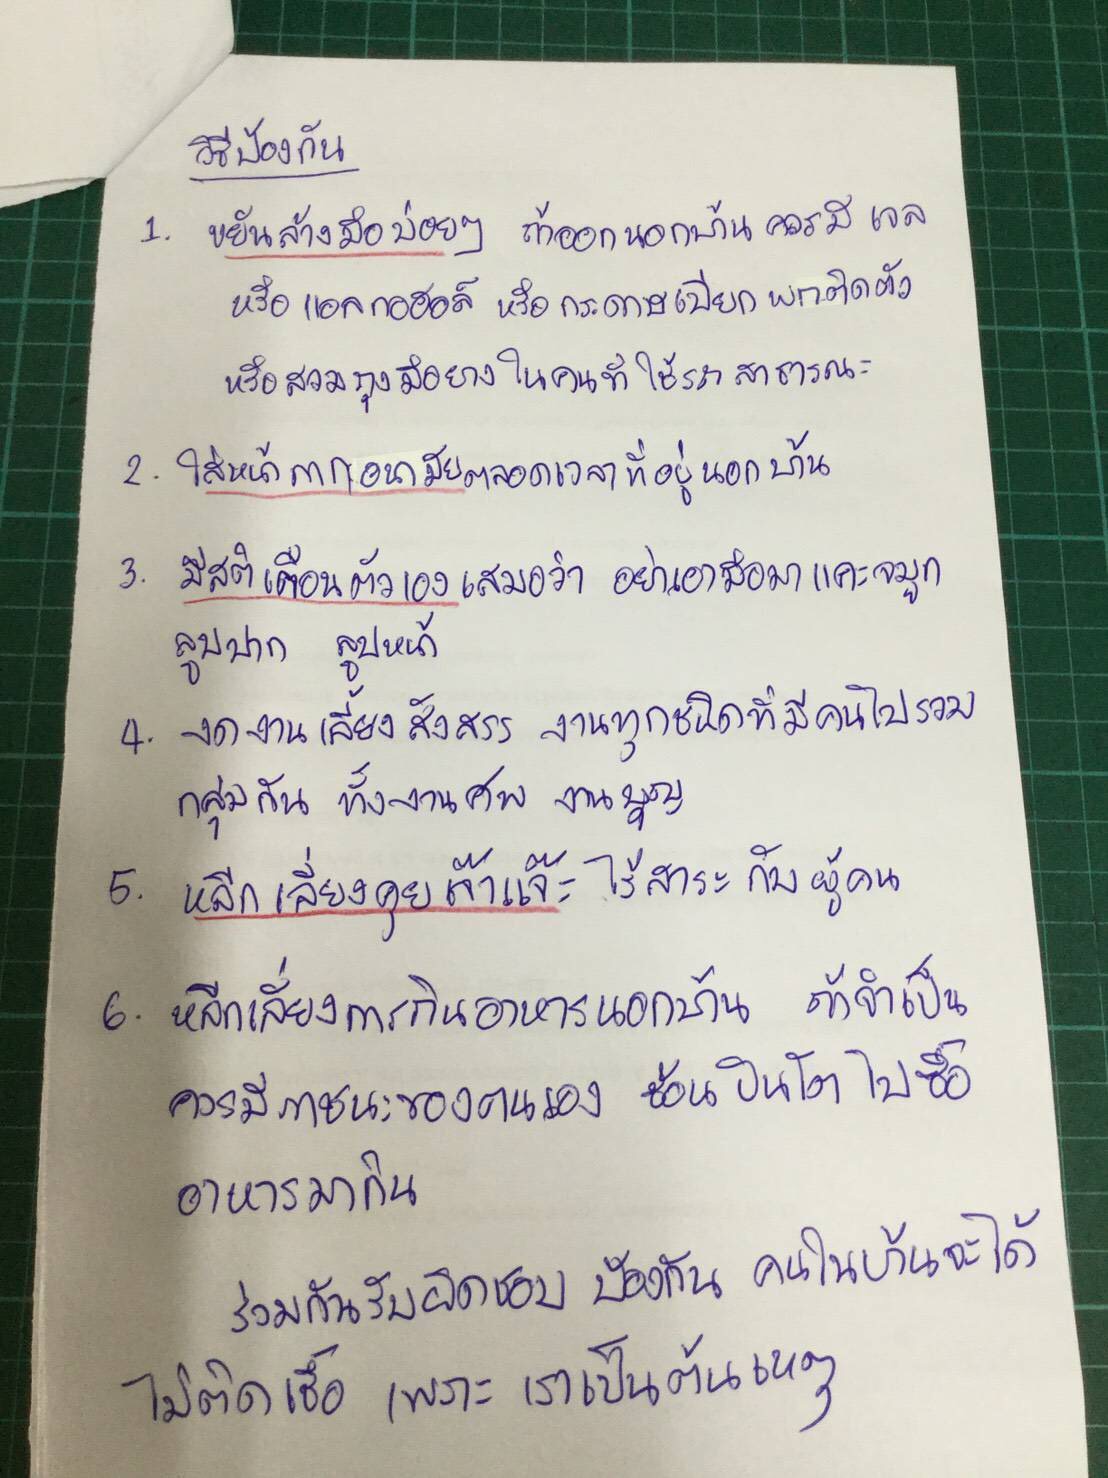 วิธีป้องกัน
1. หยันล้างมือบ่อยๆ ถ้าออกนอกบ้าน ควรมี เจล
หรือ แอลกอฮอล์ หรือ กระดาษเปียก พกติดตัว
หรือสวมถุงมือยาง ในคนที่ ใช้รถ สาธารณะ
2. ใส่หน้ากากอนามัยตลอดเวลาที่อยู่นอกบ้าน
3. มีสติเตือนตัวเองเสมอว่า อย่าเอามือมาแคะจมูก
ลูบปาก ลูบหน้า
4. งดงานเลี้ยงสังสรร งานทุกชนิดที่มีคนไปรวม
กลุ่มกัน ทั้งงานศพ งานบุญ
5. หลีกเลี่ยงคุยจ๊ะจ๋า ไร้สาระ กับ ผู้คน
6. หลีกเลี่ยงการกินอาหารนอกบ้าน ถ้าจำเป็น
ควรมีภาชนะของตนเอง ช้อน ปิ่นโต ไปซื้อ
อาหารมากิน
ร่วมกันรับผิดชอบ ป้องกัน คนในบ้านจะได้
ไม่ติดเชื้อ เพราะ เราเป็นต้นเหตุ